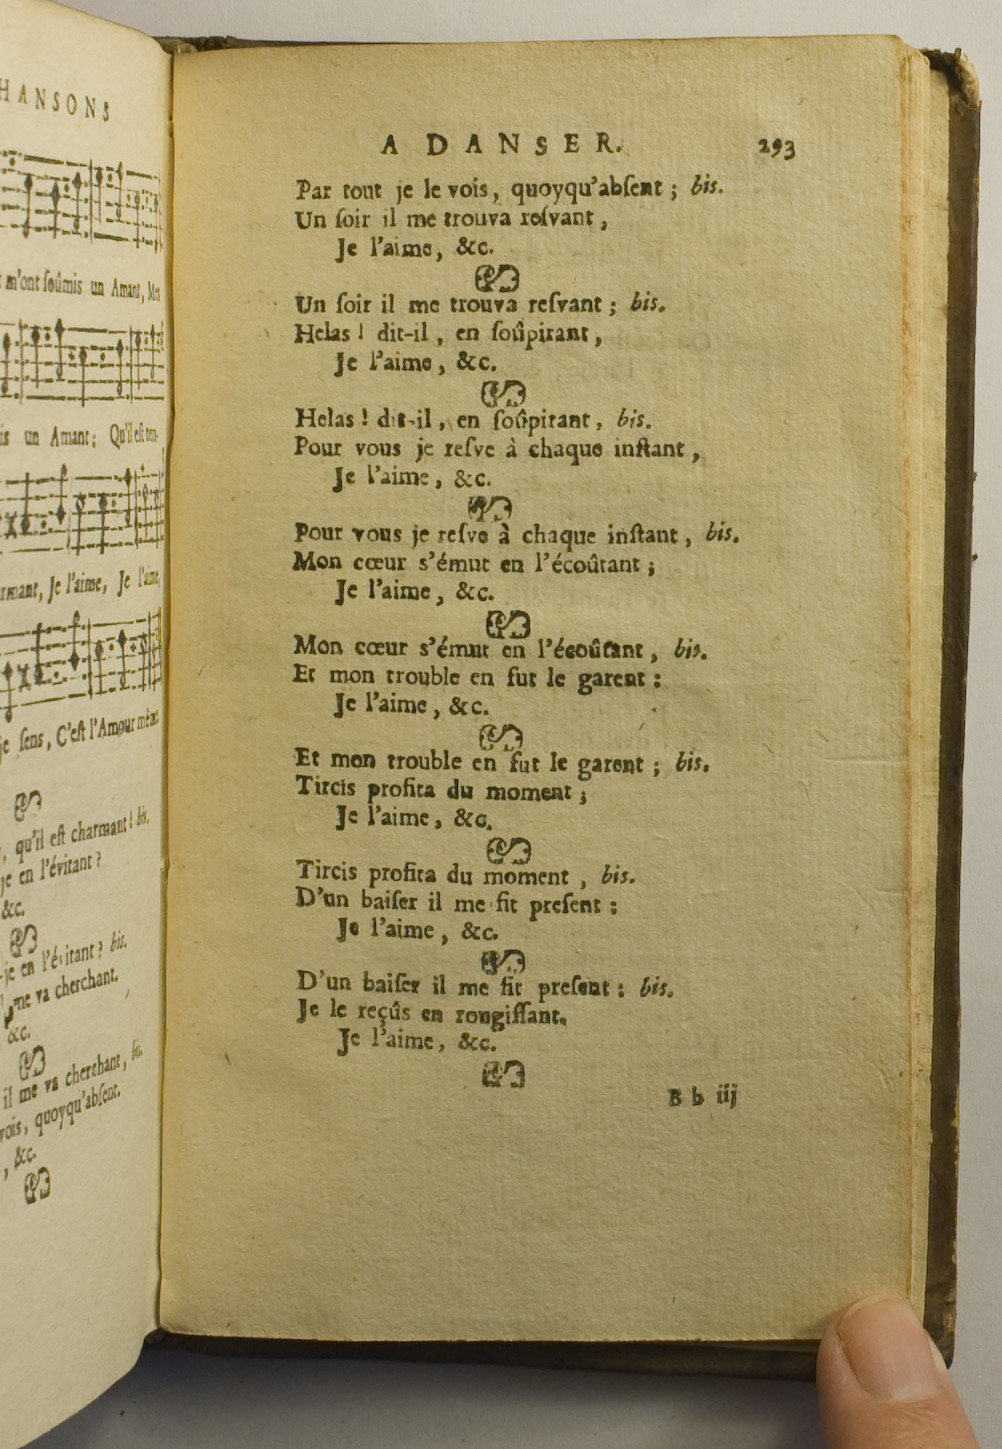 HANSONS
m'ont soûmis un Amant, Mes
is un Amant; Qu'il est ten-
rmant, Je l'aime, Je l'aime,
je sens, C'est l'Amour même
, qu'il est charmant! bis.
je en l'évitant?
&c.
-je en l'évitant? bis.
me va cherchant.
&c.
il me va cherchant, bis.
vois, quoyqu'absent.
, &c.
A DANSER. 293
Par tout je le vois, quoyqu'absent; bis.
Un soir il me trouva resvant,
Je l'aime, &c.
Un soir il me trouva resvant; bis.
Helas! dit-il, en soûpirant,
Je l'aime, &c.
Helas! dit-il, en soûpirant, bis.
Pour vous je resve à chaque instant,
Je l'aime, &c.
Pour vous je resve à chaque instant, bis.
Mon cœur s'émut en l'écoûtant;
Je l'aime, &c.
Mon cœur s'émut en l'écoûtant, bis.
Et mon trouble en fut le garent:
Je l'aime, &c.
Et mon trouble en fut le garent; bis.
Tircis profita du moment;
Je l'aime, &c.
Tircis profita du moment, bis.
D'un baiser il me fit present:
Je l'aime, &c.
D'un baiser il me fit present: bis.
Je le reçûs en rougissant.
Je l'aime, &c.
B b iij